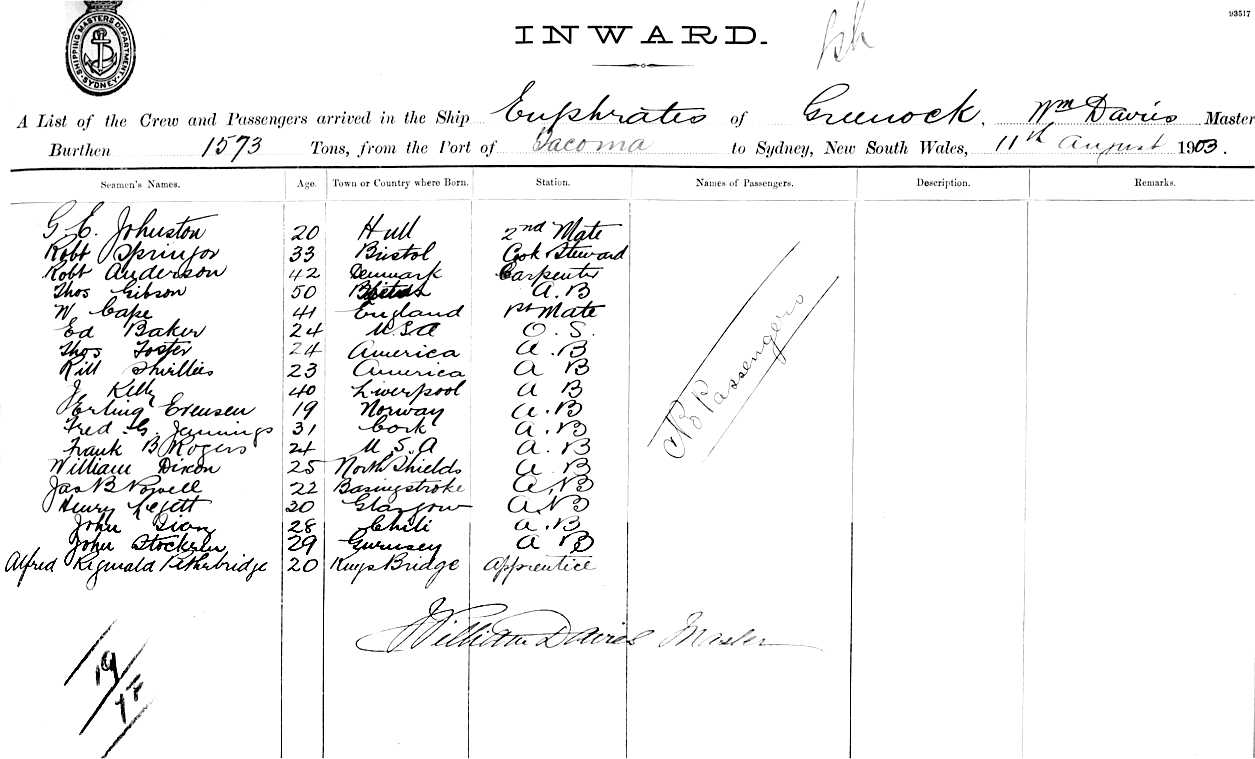 93517
SHIPPING MASTERS DEPARTMENT SYDNEY
INWARD.
A List of the Crew and Passengers arrived in the Ship Euphrates of Greenock, Wm Davies Master
Burthen 1573 Tons, from the Port of Tacoma to Sydney, New South Wales, 11th August 1903.
Seamen's Names. Age. Town or Country where Born. Station. Names of Passengers. Description. Remarks.
G. E. Johnston 20 Hull 2nd Mate
Robt Springor 33 Bristol Cook Steward
Robt Anderson 42 Denmark Carpenter
Thos Gibson 50 A.B
W Cape 41 England 1st Mate
Ed Baker 24 U.S.A O.S.
Thos Foster 24 America A.B
23 America A B
J Kelly 40 Liverpool A B
Erling Evensen 19 Norway A.B
Fred G. Jennings 31 Cork A.B
Frank B Rogers 24 U.S.A A.B
William Dixon 25 North Shields A B
Jas B Powell 22 Basingstoke A.B
Henry 20 Glasgow A.B
John 28 Chili A.B
John 29 Guernsey A B
Alfred Reginald Petherbridge 20 Kings Bridge Apprentice
No Passengers
William Davies Master
19
18